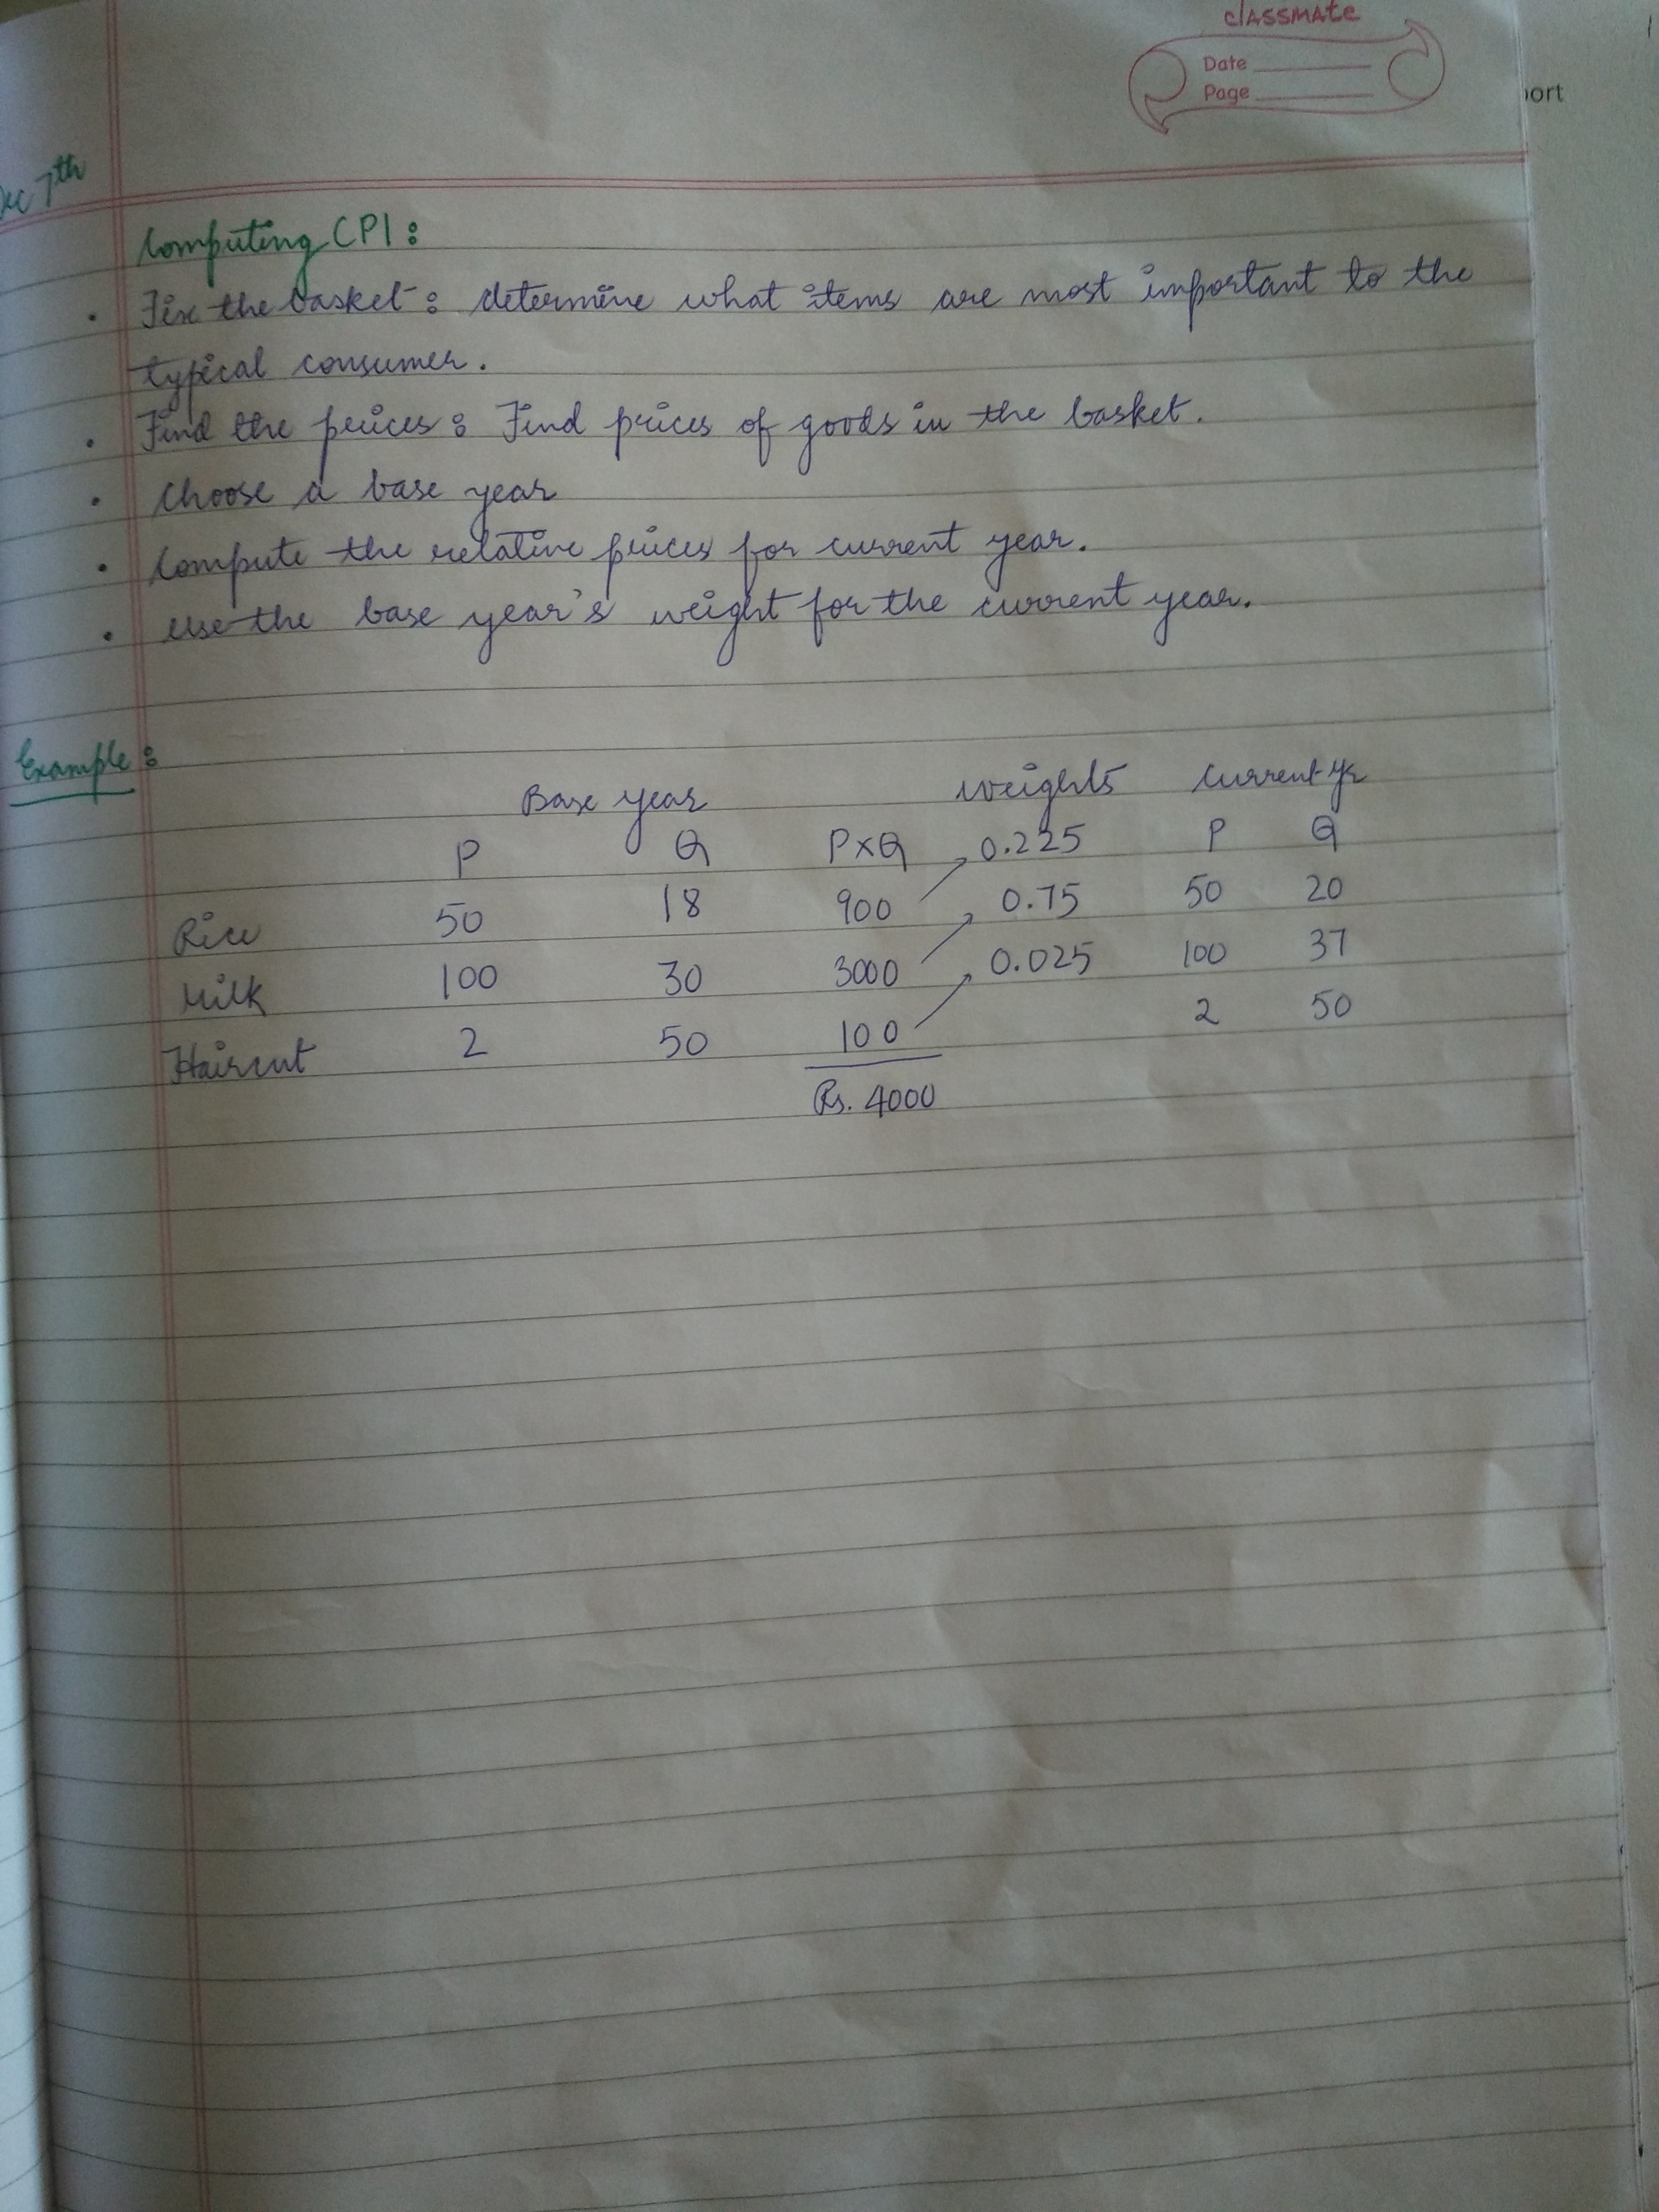 classmate
Date
Page
ort
Dec 7th
Computing CPI:
• Fix the basket: determine what items are most important to the
typical consumer.
• Find the prices: Find prices of goods in the basket.
• Choose a base year
• Compute the relative prices for current year.
• Use the base year's weight for the current year.
Example:
Base year weights Current yr
P Q PxQ 0.225 P Q
Rice 50 18 900 0.75 50 20
Milk 100 30 3000 0.025 100 37
Haircut 2 50 100 2 50
Rs. 4000